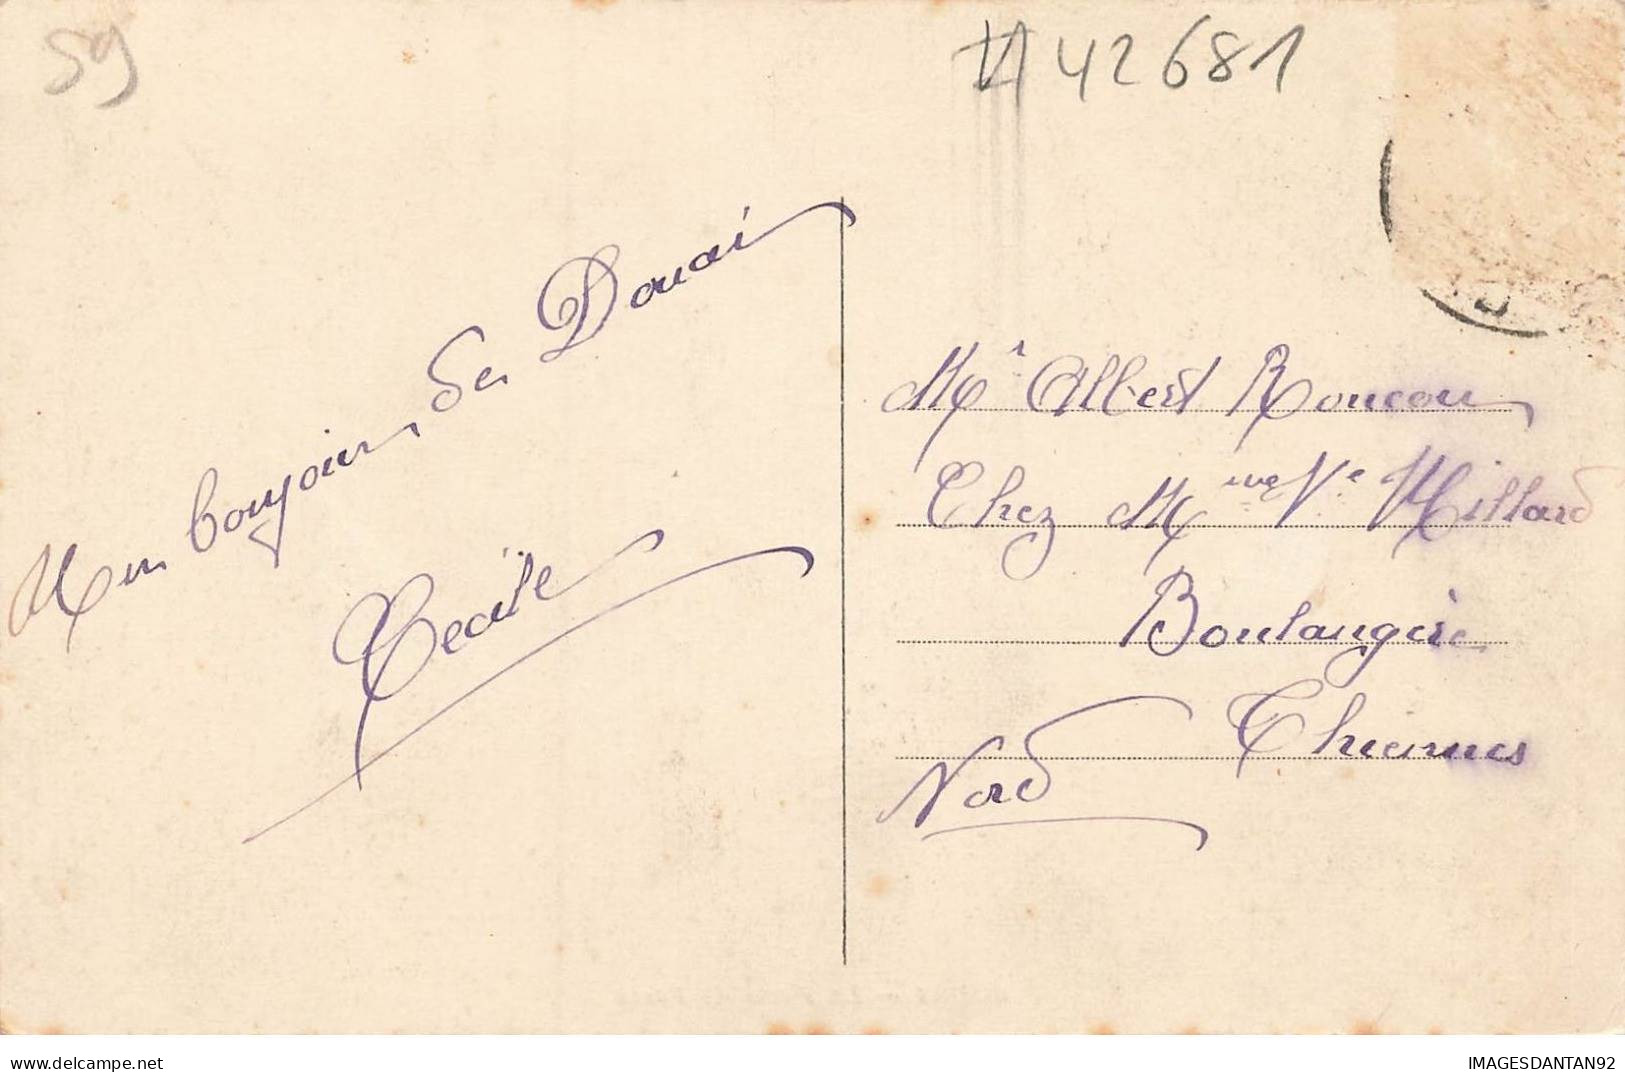 59
# 42681
Mon bonjour de Douai
Cécile
Mr Albert Roucou
Chez Mme Ve Millard
Boulangère
Thiennes
Nord
delcampe.net
IMAGESDANTAN92